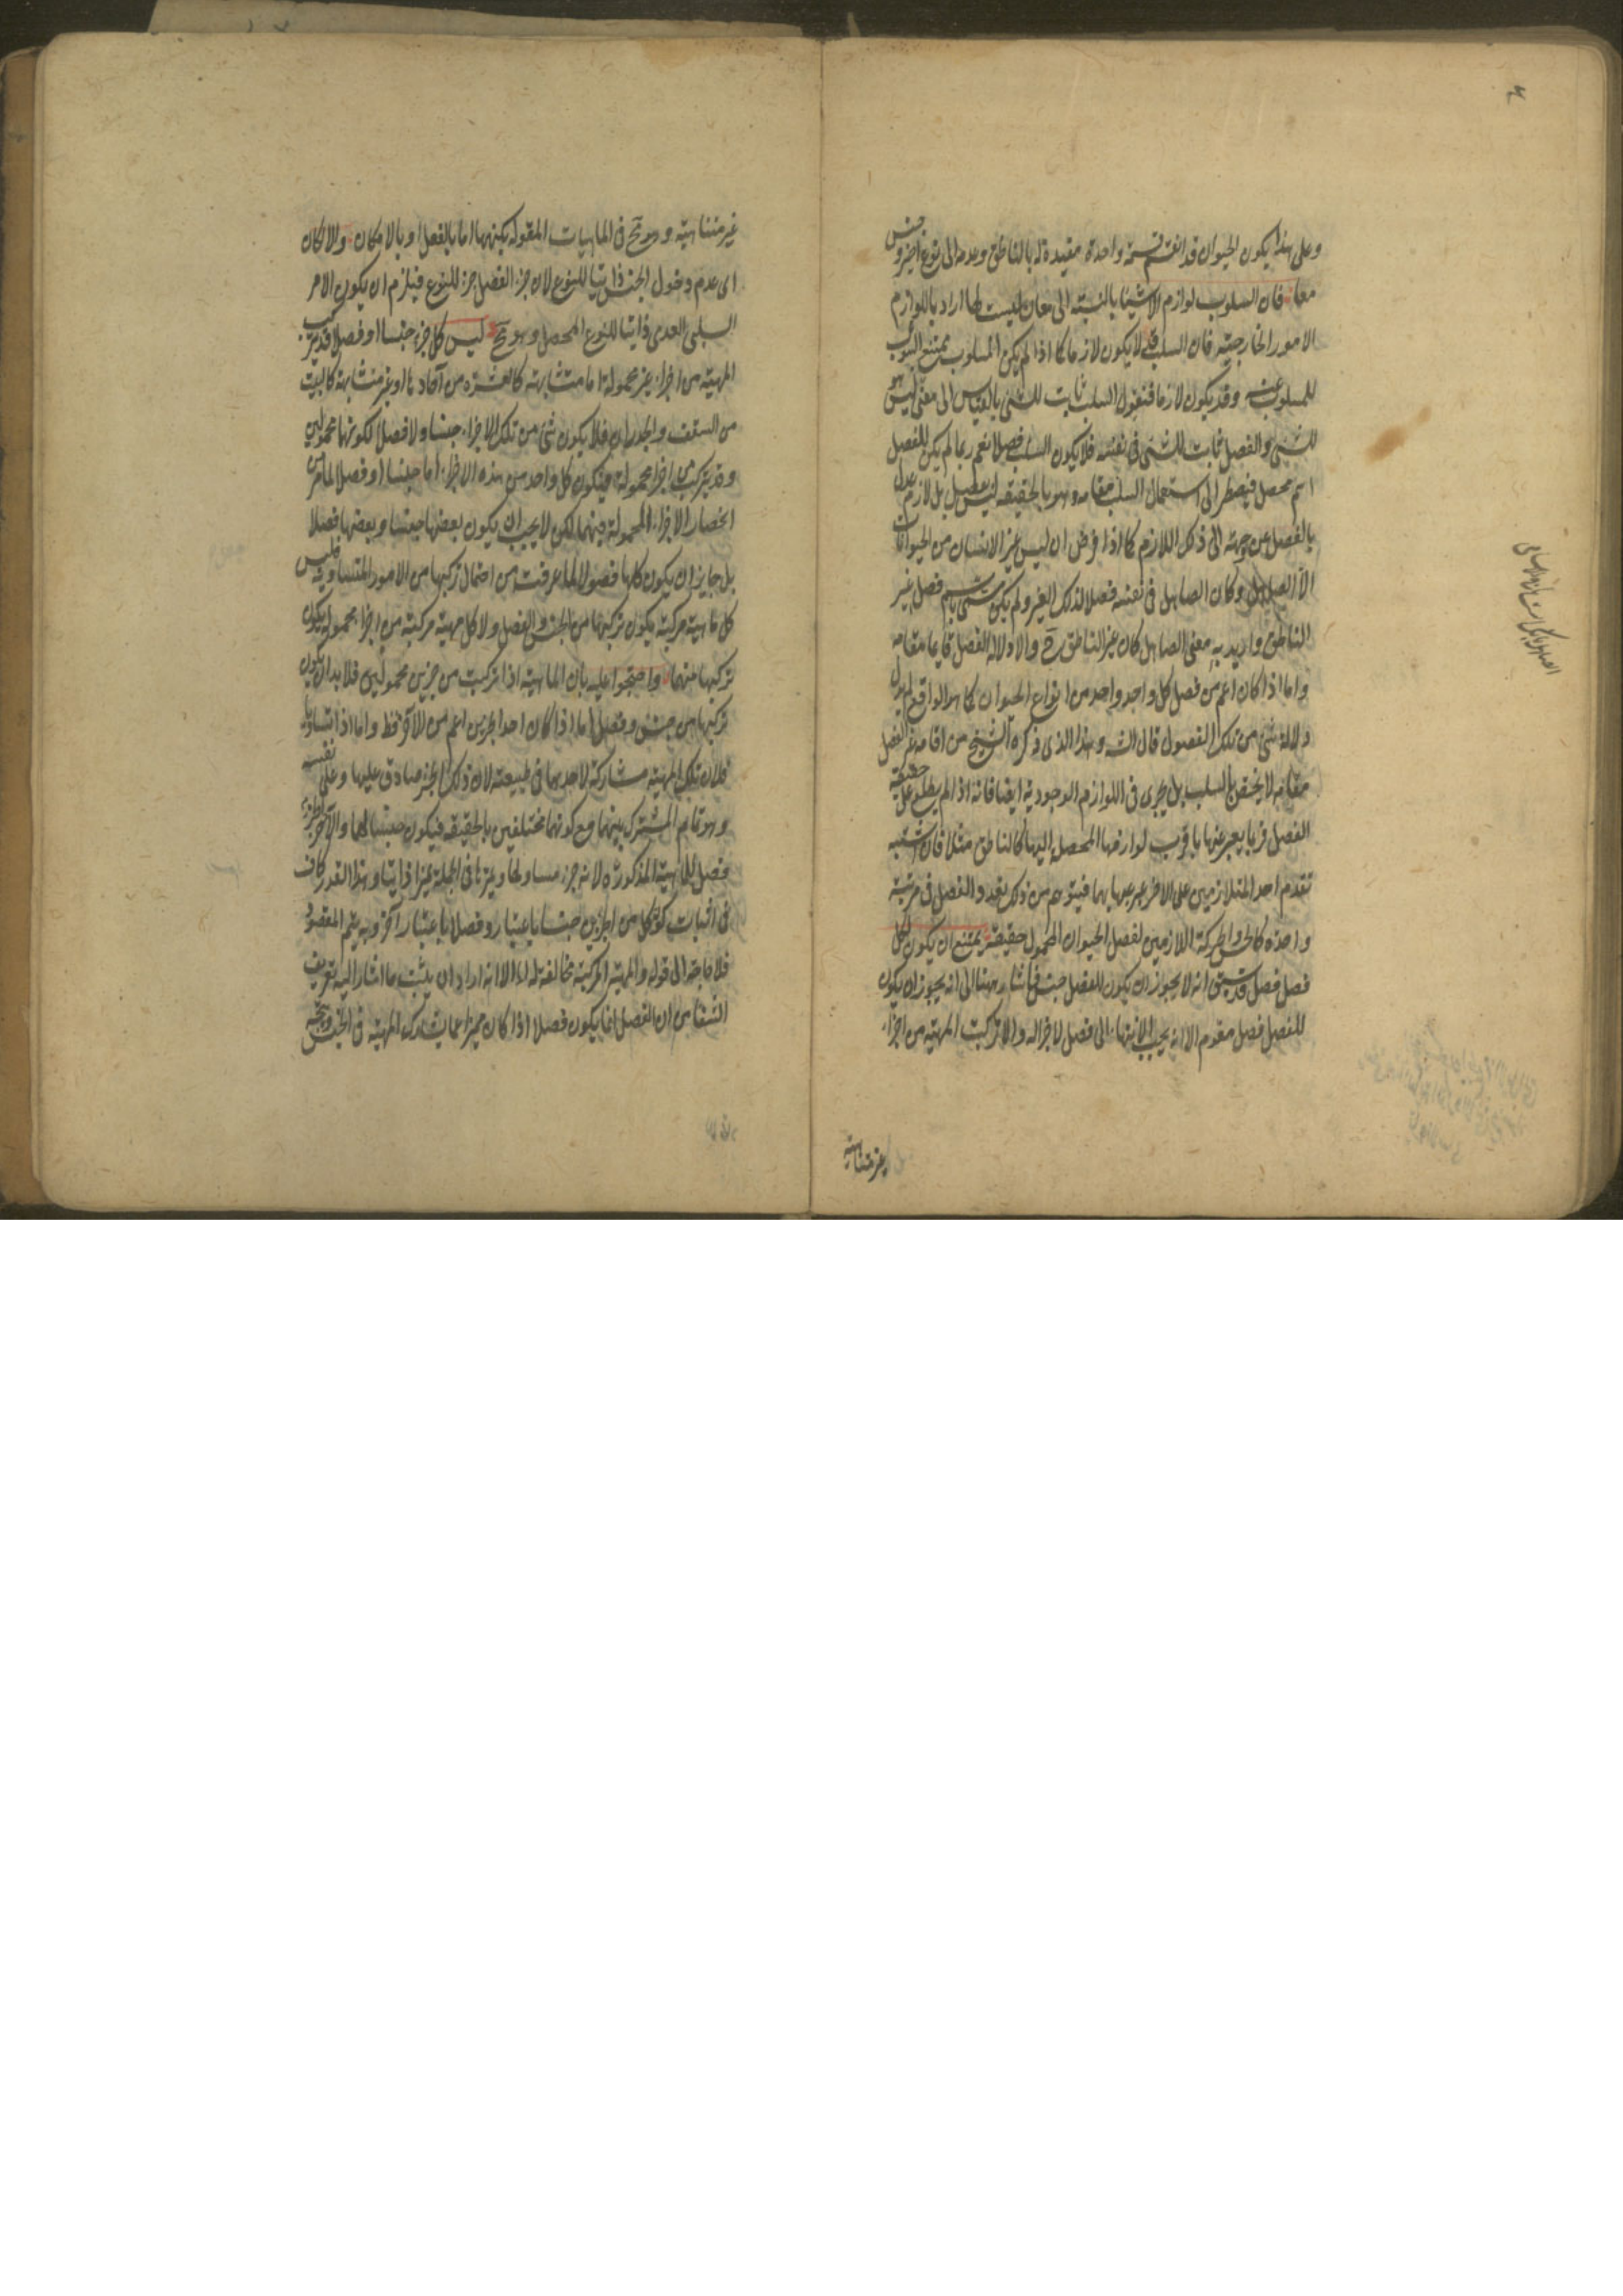 وعلى هذا يكون الحيوان قد انقسم قسمة واحدة مقيدة له بالناطق وعدمه الى نوع اخير وجنس
معا فان السلوب لوازم الاشيا بالنسبة الى معان ليست لها اراد باللوازم
الامور الخارجية فان السلب قد لا يكون لازما كما اذا لم يكن المسلوب ممتنع الثبوت
للمسلوب عنه وقد يكون لازما فنقول السلب ثابت للشئ بالقياس الى معنى ليس هو
للشئ والفصل ثابت للشئ فى نفسه فلا يكون السلب فصلا نعم ربما لم يكن للفصل
اسم محصل فيضطر الى استعمال السلب مقامه وهو بالحقيقة ليس بفصل بل لازم عدل
بالفصل عن وجهته الى ذلك اللازم كما اذا فرض ان ليس غير الانسان من الحيوانات
الا الصاهل وكان الصاهل فى نفسه فصلا لذلك الغير ولم يكن مسمى باسم فصل غير
الناطق واريد به معنى الصاهل كان غير الناطق ح والا ولالة الفصل قايما مقامه
واما اذا كان اعم من فصل كل واحد واحد من انواع الحيوان كما هو الواقع لم يدل
دلالة شئ من تلك الفصول قال الشه وهذا الذى ذكره الشيخ من اقامة غير الفصل
مقامه لا يختص بالسلب بل يجرى فى اللوازم الوجودية ايضا فانه اذا لم يطلع على حقيقة
الفصل فربما يعبر عنها باقرب لوازمها المحصلة اليها كالناطق مثلا فان اشتبه
تقدم احد المتلازمين على الاخر عبر عنها بهما فيتوهم من ذلك تعدد الفصل فى مرتبة
واحدة كالحس والحركة اللازمين لفصل الحيوان المحمول حقيقة يمتنع ان يكون لكل
فصل فصل قد سبق انه لا يجوز ان يكون للفصل جنس فاشار ههنا الى انه يجوز ان يكون
للفصل فصل مقدم الا انه يجب الانتهاء الى فصل لا جزا له والا تركبت المهية من اجزاء
غير متناهية
غير متناهية وهو مح فى الماهيات المقولة بكنهها اما بالفعل او بالامكان والا كان
اى عدم دخول الجنس ذاتيا للنوع لان جزء الفصل جزء للنوع فيلزم ان يكون الامر
السلبى العدمى ذاتيا للنوع المحصل وهو مح ليس كل جزء جنسا او فصلا قد يتركب
المهية من اجزاء غير محمولة اما متشابهة كالعشرة من آحادها او غير متشابهة كالبيت
من السقف والجدران فلا يكون شئ من تلك الاجزاء جنسا ولا فصلا لكونهما محمولين
وقد يتركب من اجزا محمولة فيكون كل واحد من هذه الاجزاء اما جنسا او فصلا لما مر من
انحصار الاجزاء المحمولة فيهما لكن لا يجب ان يكون بعضها جنسا وبعضها فصلا
بل جايز ان يكون كلها فصولا لما عرفت من احتمال تركبها من الامور المتساوية فليس
كل ماهية مركبة يكون تركبها من الجنس والفصل ولا كل مهية مركبة من اجزاء محمولة يكون
تركبها منهما واحتجوا عليه بان الماهية اذا تركبت من جزئين محمولين فلا بد ان يكون
تركبها من جنس وفصل اما اذا كان احد الجزين اعم من الاخر فظ واما اذا تساويا
فلان تلك المهية مشاركة لاحدهما فى طبيعته لان ذلك الجزء صادق عليها وعلى نفسه
وهو تمام المشترك بينهما مع كونهما مختلفين بالحقيقة فيكون جنسا لهما والاخر الجزء
فصل للماهية المذكورة لانه جزء مساو لها ويميزها فى الجملة تميزا ذاتيا وهذا القدر كاف
فى اثبات كون كل من الجزين جنسا باعتبار وفصلا باعتبار آخر وبه يتم المقصود
فلا حاجة الى قوله والمهية المركبة مخالفة له الا انه اراد ان يثبت ما اشار اليه تعريف
الشفا من ان الفصل انما يكون فصلا اذا كان مميزا عما يشارك المهية فى الجنس